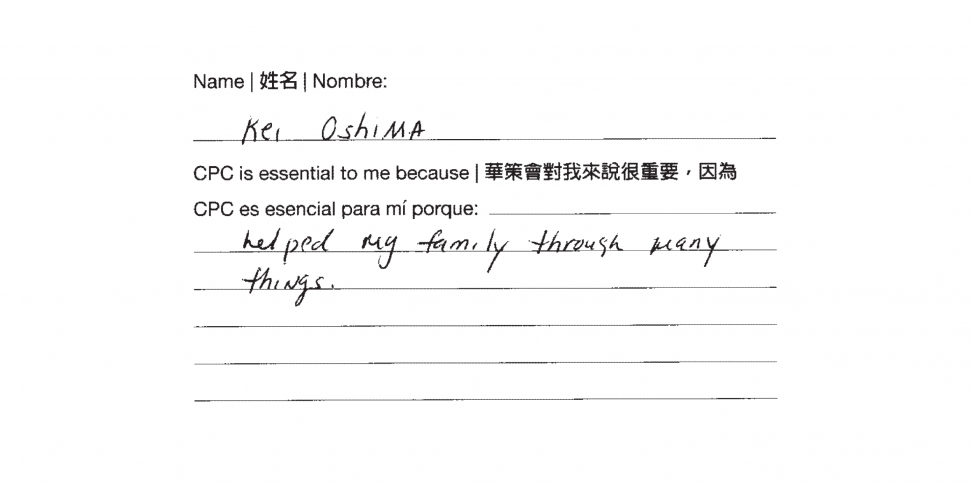 Name | 姓名 | Nombre:
Kei OshiMA
CPC is essential to me because | 華策會對我來說很重要，因為
CPC es esencial para mí porque:
helped my family through many
things.